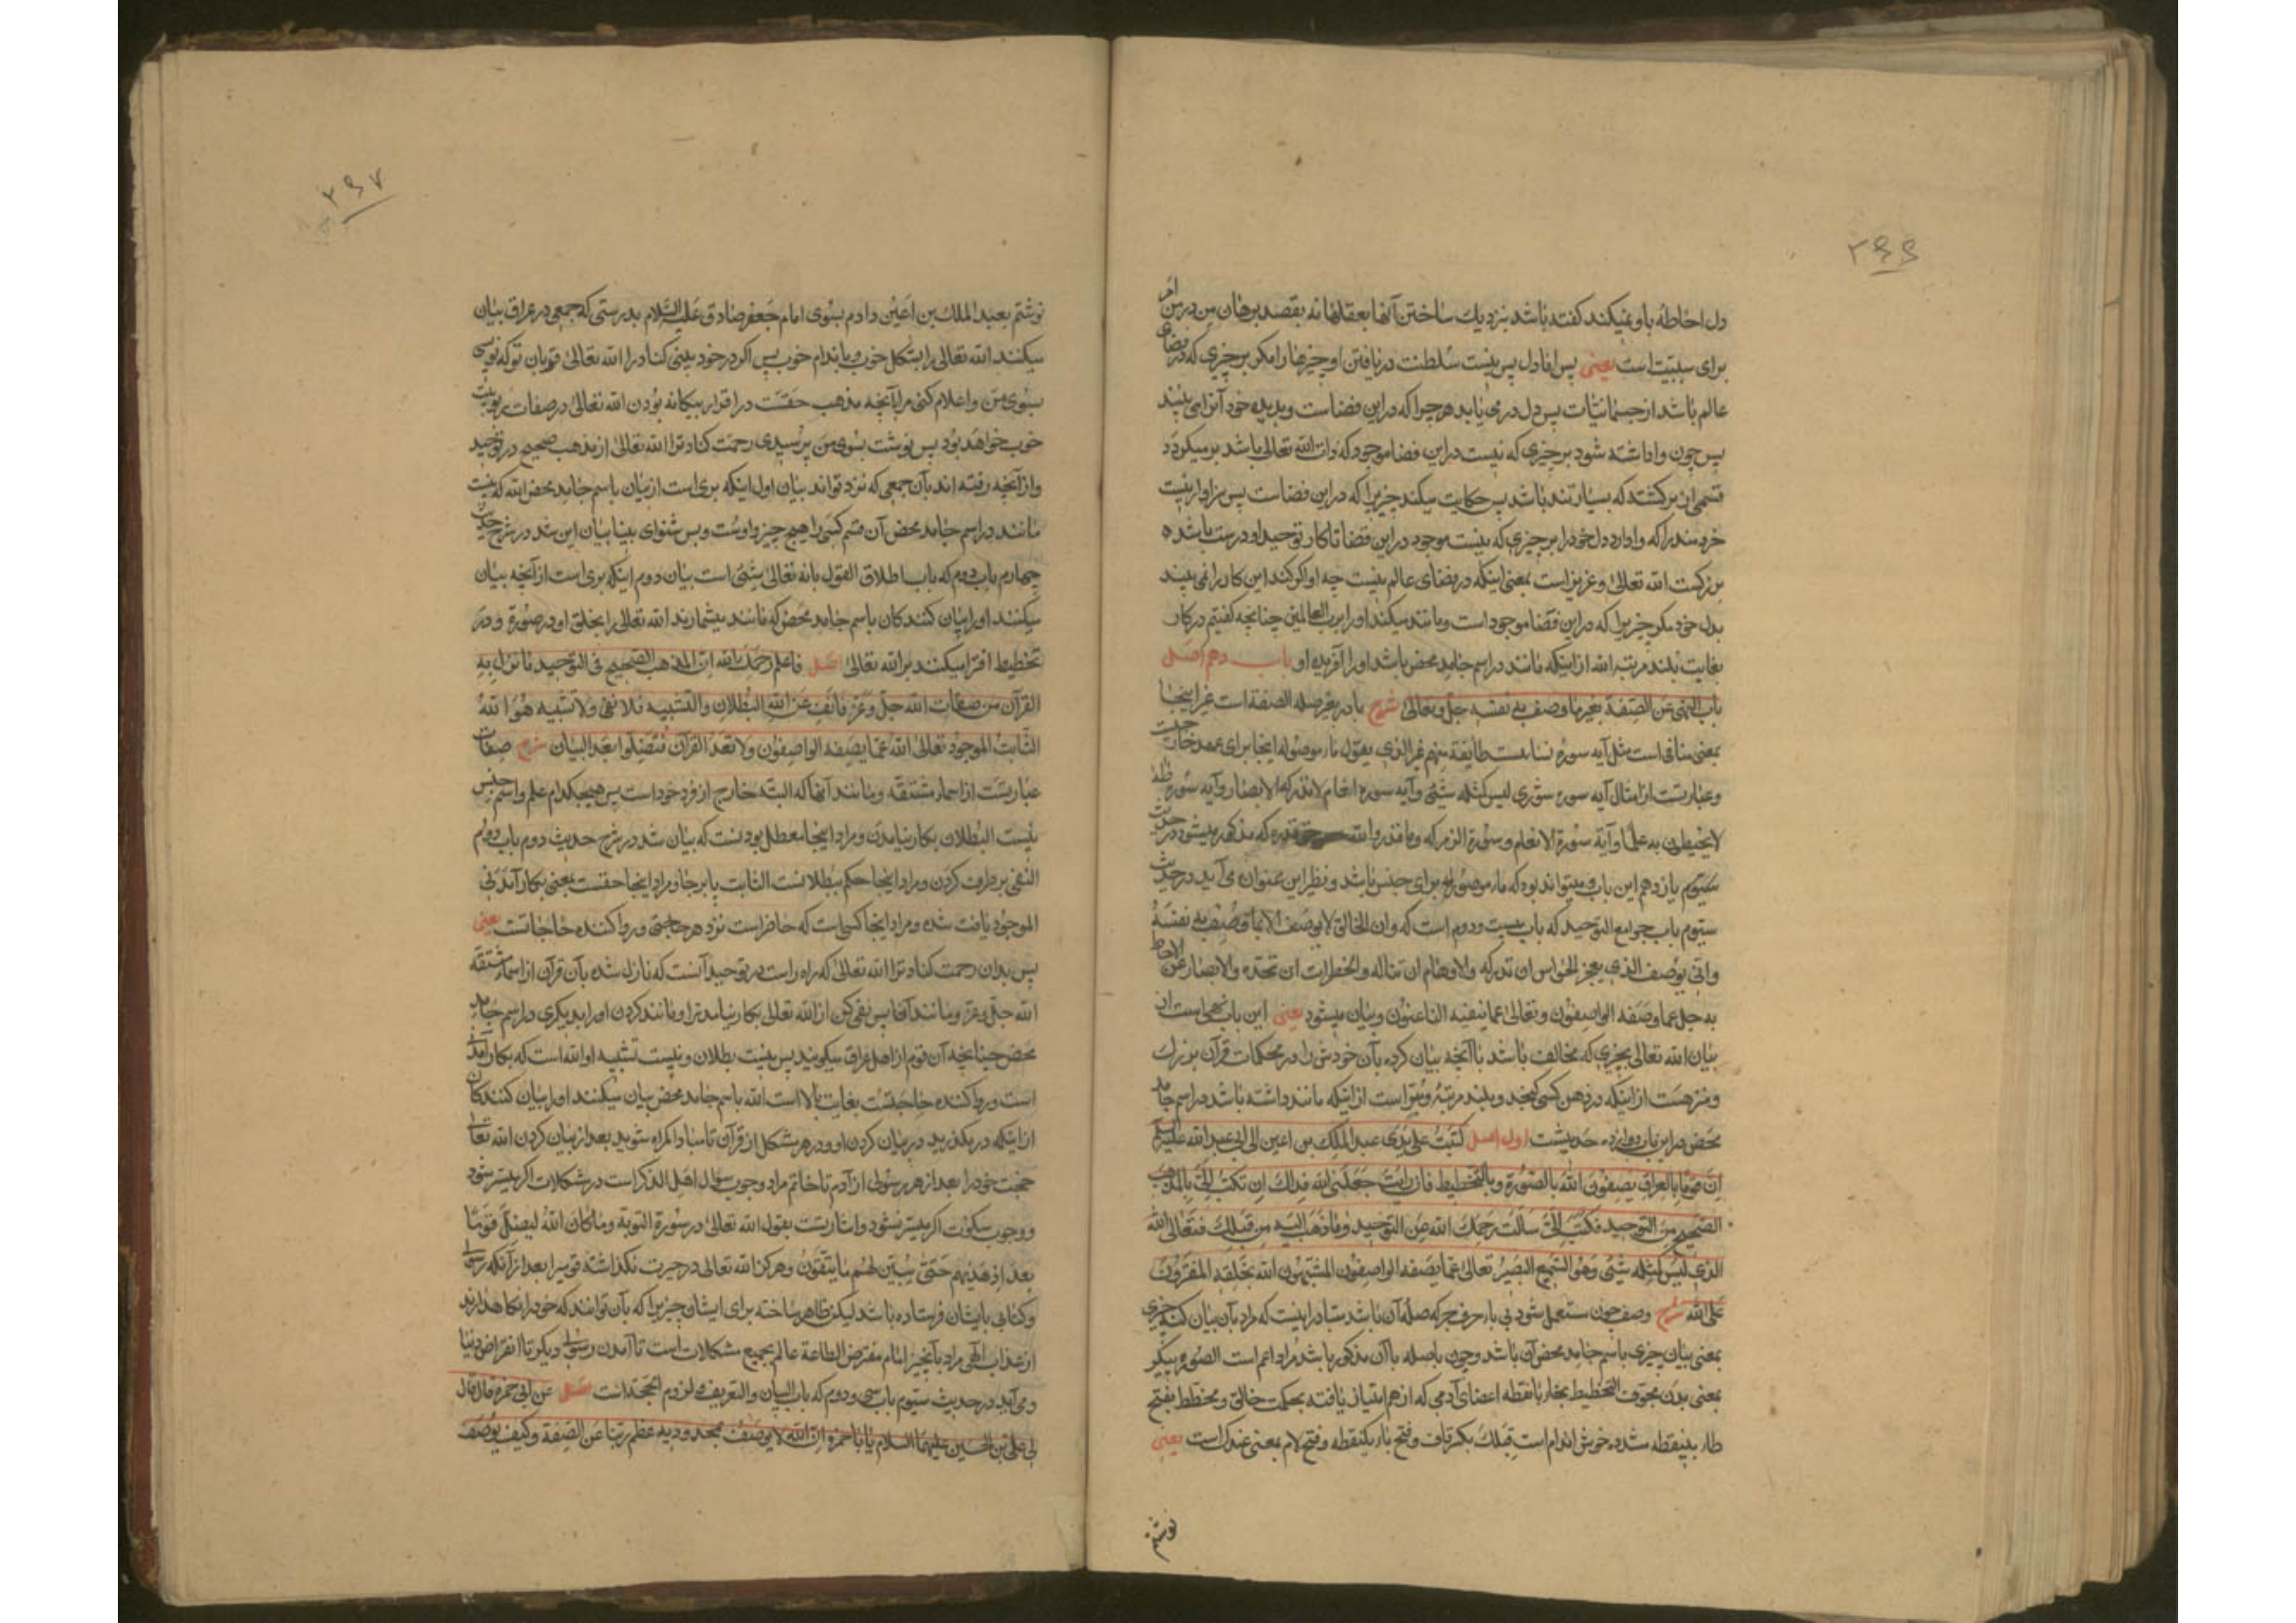 ۲۶۶
دل احاطه باو نمیکند گفته باشد بنزدیك ساختن آنها بعقلها نه بقصد برهان من در من امر
برای سببیّت است یعنی پس اما دل پس نیست سلطنت در یافتن او چیزها را مکر بر چیزی که در فضای
عالم باشد از جسمانیّات پس دل در می یابد هر چیرا که در این فضاست و بدیده خود آنرا می بیند
پس چون واداشته شود بر چیزی که نیست در این فضا موجود که ذات الله تعالی باشد بر میکردد
قسمی از برکشتن که بسیار تند باشد پس حکایت میکند چیزیرا که در این فضاست پس سزاوار نیست
خردمند را که وادارد دل خود را بر چیزی که نیست موجود در این فضا تا کار توحید او درست باشد
بزرکست الله تعالی و عزیز است بمعنی اینکه در فضای عالم نیست چه او اکر کند این کار را نمی بیند
بدل خود مکر چیزیرا که در این فضا موجود است و مانند میکند او را برب العالمین چنانچه کفتیم در کار
بغایت بلند مرتبه الله از اینکه مانند در اسم جامد محض باشد او را آفریده او باب دهم اصل
باب النهی عن الصّفة بغیر ما وصف به نفسه جلّ و تعالی شرح با در بغیر صله الصفة است غیر اینجا
بمعنی منافی است مثل آیه سوره نسا بیّت طائفة منهم غیر الذی یقول ما، موصوله اینجا برای عهد خارجیست
و عبارتست از امثال آیه سوره شوری لیس کمثله شیٔ و آیه سوره انعام لا تدرکه الابصار و آیه سوره طه
لا یحیطون به علمًا و آیة سورة الانعام و سورة الزمر که و ما قدروا الله حق قدره که مذکور میشود در حدیث
سیّوم یازدهم این باب و میتواند بود که ما، موصوله برای جنس باشد و نظیر این عنوان می آید در حدیث
سیّوم باب جوامع التوحید که باب بیست و دوم است که و ان الخالق لا یوصف الّا بما وصف به نفسه
و انّی یوصف الذی یعجز الحواس ان تدرکه و الاوهام ان تناله و الخطرات ان تحدّه و الابصار عن الاحاطة
به جلّ عما وصفه الواصفون و تعالی عما ینعته الناعتون و بیان میشود یعنی این باب نهی است از
بیان الله تعالی بچیزی که مخالف باشد با آنچه بیان کرده بآن خودش را در محکمات قرآن بزرك
و منزهست از اینکه در ذهن کسی کنجد و بلند مرتبة و مبرّا است از اینکه مانند داشته باشد در اسم جامد
محض در این باب دوازده حدیثست اول اصل کتبتُ علی یدی عبد الملك بن اعین الی ابی عبد الله علیه السلم
انّ قومًا بالعراق یصفون اللهَ بالصّورة و بالتخطیط فان رایت جعلنی الله فداك ان تکتب الیّ بالمذهب
الصحیح من التوحید فکتب الیّ سالت رحمك الله عن التوحید و ما ذهب الیه من قبلك فتعالی الله
الذی لیس کمثله شیٔ و هو السّمیع البصیر تعالی عمّا یصفه الواصفون المشبّهون الله بخلقه المفترون
علی الله شرح وصف چون مستعمل شود بی باء حرف جر که صلهٔ آن باشد متبادر اینست که مراد بآن بیان کنه چیزی
بمعنی بیان چیزی باسم جامد محض آن باشد و چون با صله باآن مذکور باشد مراد اعم است الصّورة پیکر
بمعنی بدن مجوف التخطیط بخاء با نقطه اعضای آدمی که از هم امتیاز یافته بحکمت خالق و مخطط بفتح
طاء بینقطه مشدده خوش اندام است قبلك بکسر قاف و فتح باء یکنقطه و فتح لام بمعنی عندك است یعنی
نوشتم
۲۶۷
نوشتم بعبد الملك بن اعین دادم بسوی امام جعفر صادق علیه السّلام بدرستی که جمعی در عراق بیان
میکنند الله تعالی را بشکل خوب و باندام خوب پس اکر در خود بینی کناد مرا الله تعالی قربان تو که نویسی
بسوی من و اعلام کنی مرا بآنچه مذهب حقّست در اقرار بیکانه بودن الله تعالی در صفات ربوبیّت
خوب خواهد بود پس نوشت بسوی من پرسیدی رحمت کناد ترا الله تعالی از مذهب صحیح در توحید
و از آنچه رفته اند بآن جمعی که نزد تواند بیان اول اینکه بری است از بیان باسم جامد محض الله که نیست
مانند در اسم جامد محض آن قسم کسی را هیچ چیز و اوست و بس شنوای بینا بیان این شد در شرح حدیث
چهارم باب دوم که باب اطلاق القول بانه تعالی شیٔ است بیان دوم اینکه بری است از آنچه بیان
میکنند او را بیان کنندکان باسم جامد محض که مانند میشمارند الله تعالی را بخلق او در صورة و در
تخطیط افترا میکنند بر الله تعالی اصل فاعلم رحمك الله انّ المذهب الصّحیح فی التوحید ما نزل به
القرآن من صفات الله جلّ و عزّ فانفِ عن الله البُطلان و التشبیه فلا نفی و لا تشبیه هو الله
الثّابت الموجود تعالی الله عمّا یصفه الواصفون و لا تعدُ القرآن فتضلّوا بعد البیان شرح صفات
عبارتست از اسماء مشتقه و مانند آنها که البته خارج از فرد خود است پس هیچیکدام علم و اسم جنس
نیست البطلان بکار نیامدن و مراد اینجا معطل بودنست که بیان شد در شرح حدیث دوم باب دوم
النفی برطرف کردن و مراد اینجا حکم ببطلانست الثابت پابرجا و مراد اینجا حقست بمعنی بکار آمدنی
الموجود یافت شده و مراد اینجا کسی است که حاضر است نزد هر حاجتی و روا کننده حاجاتست یعنی
پس بدان رحمت کناد ترا الله تعالی که راه راست در توحید آنست که نازل شده بآن قرآن از اسماء مشتقه
الله جلّ و عزّ و مانند آنها پس نفی کن از الله تعالی بکار نیامدن را و مانند کردن او را بدیکری در اسم جامد
محض چنانچه آن قوم از اهل عراق میکویند پس نیست بطلان و نیست تشبیه او الله است که بکار آمدنی
است و روا کننده حاجتست بغایت بالا است الله باسم جامد محض بیان میکنند او را بیان کنندکان
از اینکه در بکذرید در بیان کردن او و در هر مشکل از قرآن تا مبادا کمراه شوید بعد از بیان کردن الله تعالی
حجت خود را بعد از هر رسولی از آدم تا خاتم مراد وجوب سوال اهل الذکر است در مشکلات اکر میسّر شود
و وجوب سکوت اکر میسّر نشود و اشارتست بقول الله تعالی در سورة التوبة و ما کان اللهُ لیضلّ قومًا
بعد اذ هدیهم حتّی یبیّن لهم ما یتّقون و هرکز الله تعالی در حیرت نکذاشته قومیرا بعد از آنکه رسولی
و کتابی بایشان فرستاده باشد لیکن ظاهر ساخته برای ایشان چیزیرا که بآن توانند که خود را نکاهدارند
از عذاب الهی مراد بآنچیز امام مفترض الطاعة عالم بجمیع مشکلات است تا آمدن رسولی دیکر تا انقراض دنیا
و می آید در حدیث سیّوم باب سی و دوم که باب البیان و التعریف و لزوم الحجّة است اصل عن ابی حمزه قال قال
لی علی بن الحسین علیهما السلام یا ابا حمزه انّ الله لا یوصف بمحدودیه عظم ربّنا عن الصّفة و کیف یوصف